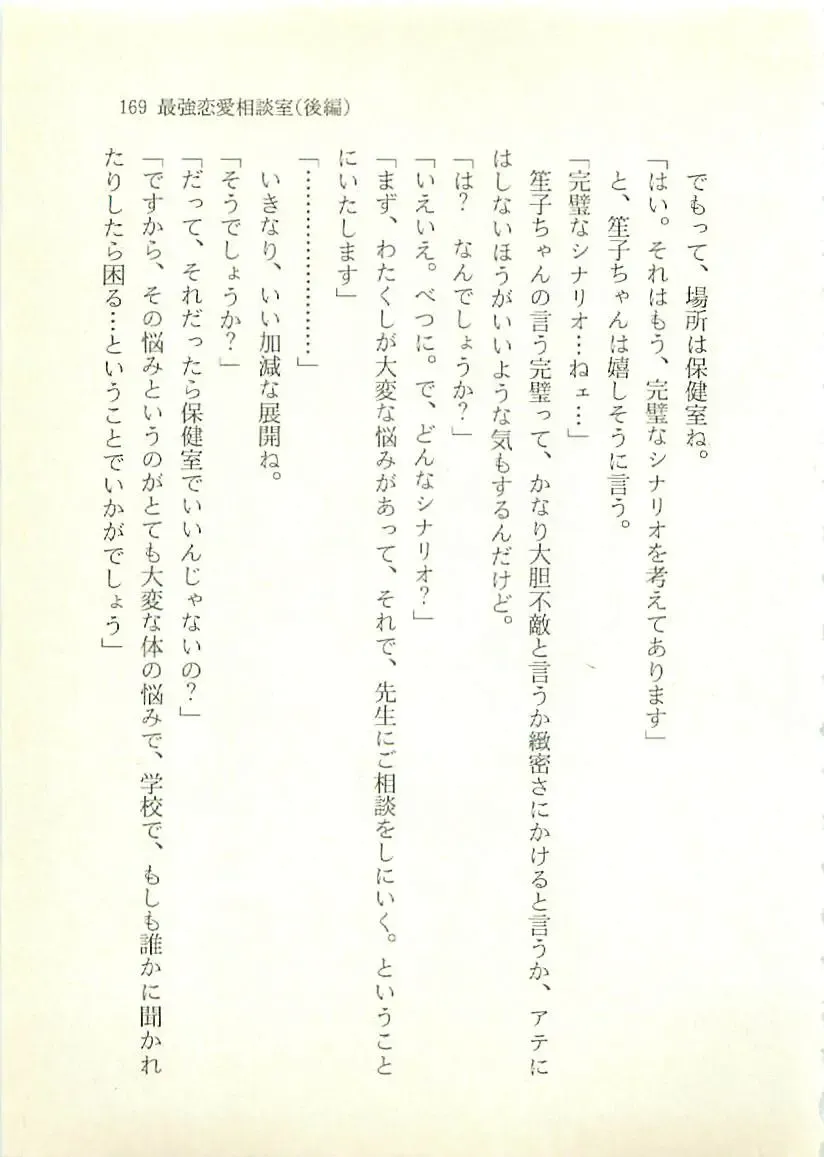 169 最強恋愛相談室(後編)
でもって、場所は保健室ね。
「はい。それはもう、完璧なシナリオを考えてあります」
と、笙子ちゃんは嬉しそうに言う。
「完璧なシナリオ…ねェ…」
笙子ちゃんの言う完璧って、かなり大胆不敵と言うか緻密さにかけると言うか、アテに
はしないほうがいいような気もするんだけど。
「は？ なんでしょうか？」
「いえいえ。べつに。で、どんなシナリオ？」
「まず、わたくしが大変な悩みがあって、それで、先生にご相談をしにいく。ということ
にいたします」
「……………………」
いきなり、いい加減な展開ね。
「そうでしょうか？」
「だって、それだったら保健室でいいんじゃないの？」
「ですから、その悩みというのがとても大変な体の悩みで、学校で、もしも誰かに聞かれ
たりしたら困る…ということでいかがでしょう」